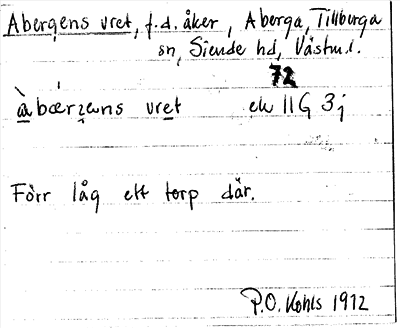 Abergens vret, f.d. åker, Aberga, Tillberga
sn, Siende hd, Västml.
72
vret ek 11G 3j
Förr låg ett torp där.
P.O. Kohls 1972